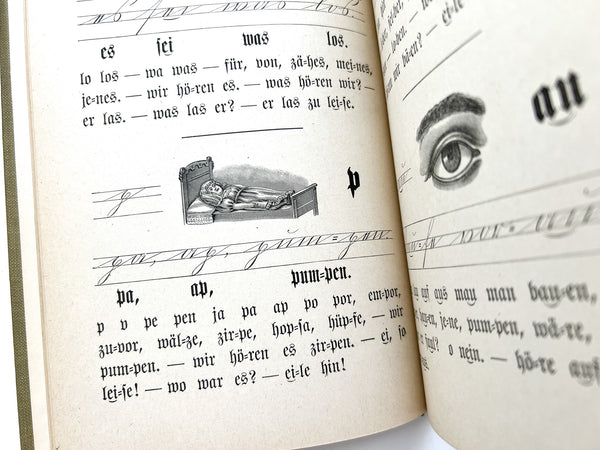 es ſei was los.
lo los — wa was — für, von, zä=hes, mei=nes,
je=nes. — wir hö=ren es. — was hö=ren wir? —
er las. — was las er? — er las zu lei=ſe.
p p
pa, ap, pum=pen.
pa, ap, pum=pen.
p v pe pen ja pa ap po por, em=por,
zu=vor, wäl=ze, zir=pe, hop=ſa, hüp=fe, — wir
pum=pen. — wir hö=ren es zir=pen. — ei, ſo
lei=ſe! — wo war es? — ei=le hin!
ei=le
au
aus mau man bau=en,
je=ne, pum=pen, wä=re,
o nein. — hö=re auf